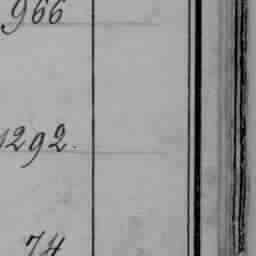 966
1292.
74